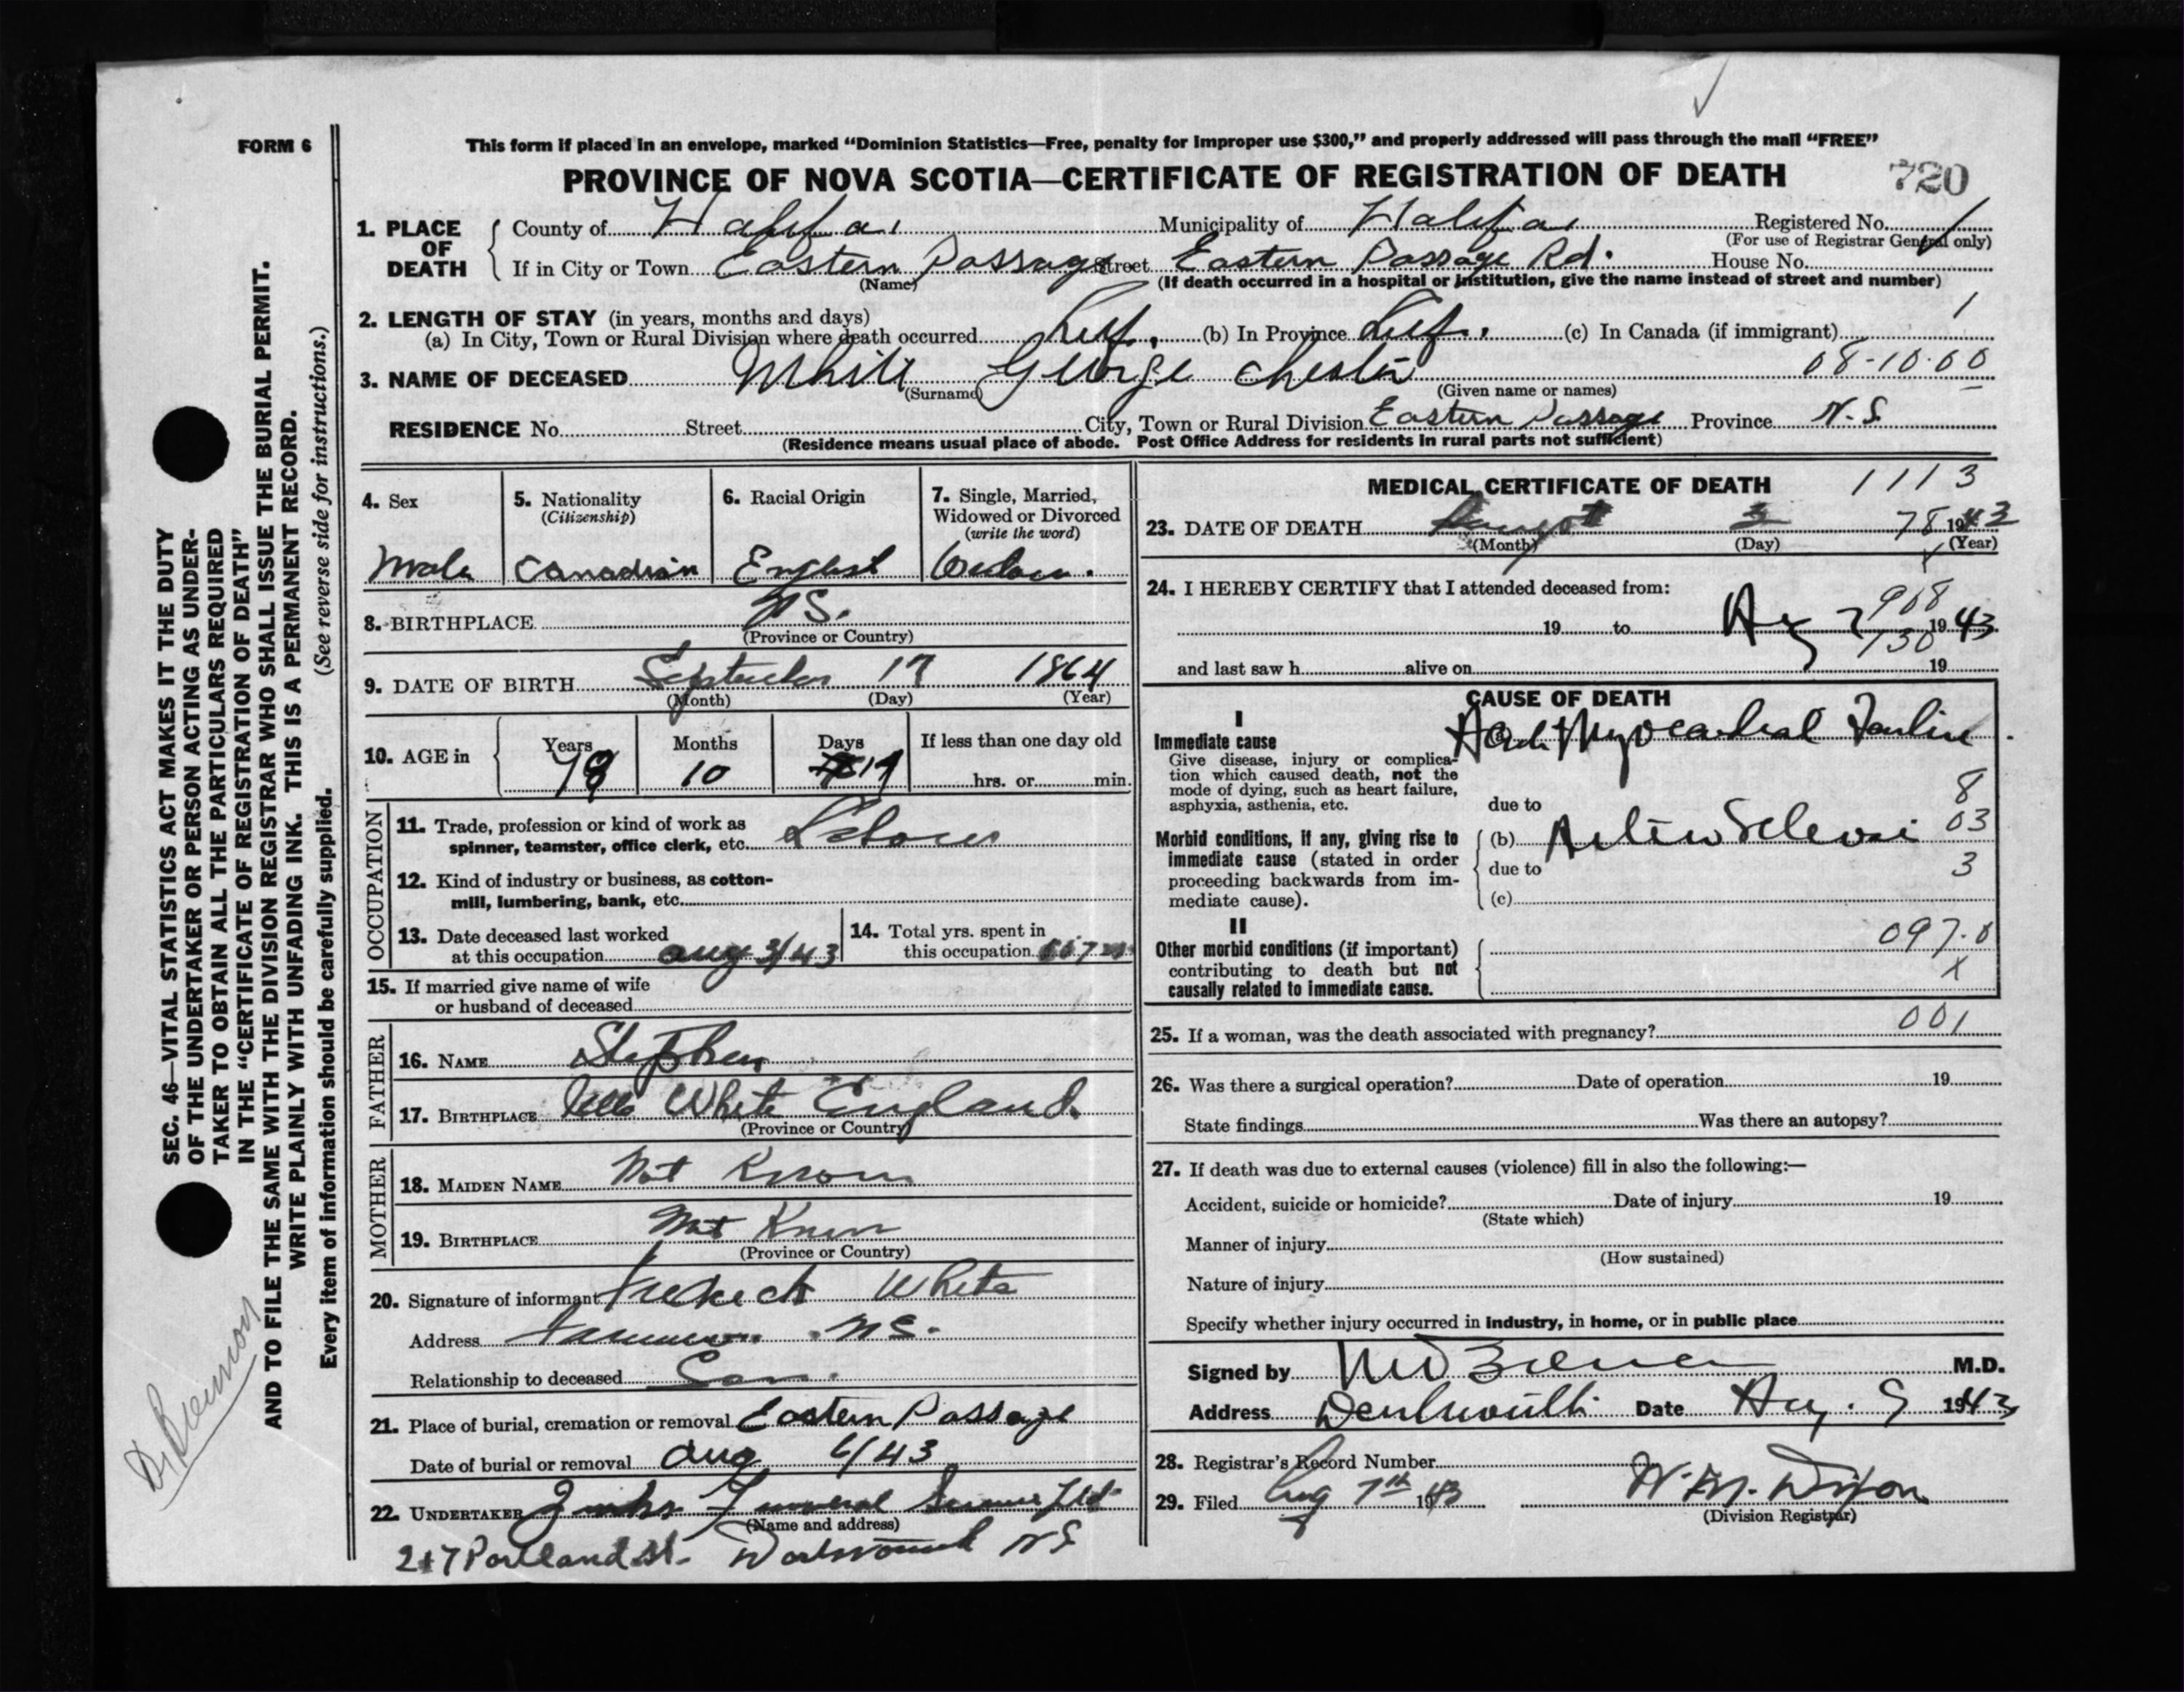 FORM 6
This form if placed in an envelope, marked “Dominion Statistics—Free, penalty for improper use $300,” and properly addressed will pass through the mail “FREE”
PROVINCE OF NOVA SCOTIA—CERTIFICATE OF REGISTRATION OF DEATH
720
1. PLACE OF DEATH
County of Halifax Municipality of Halifax Registered No.
(For use of Registrar General only)
If in City or Town Eastern Passage Street Eastern Passage Rd. House No.
(Name) (If death occurred in a hospital or institution, give the name instead of street and number)
2. LENGTH OF STAY (in years, months and days) 1
(a) In City, Town or Rural Division where death occurred Life. (b) In Province Life. (c) In Canada (if immigrant)
3. NAME OF DECEASED White George Chester 08-10-60
(Surname) (Given name or names)
RESIDENCE No. Street City, Town or Rural Division Eastern Passage Province N.S.
(Residence means usual place of abode. Post Office Address for residents in rural parts not sufficient)
4. Sex
Male
5. Nationality
(Citizenship)
Canadian
6. Racial Origin
English
7. Single, Married,
Widowed or Divorced
(write the word)
8. BIRTHPLACE N.S.
(Province or Country)
9. DATE OF BIRTH September 17 1864
(Month) (Day) (Year)
10. AGE in Years Months Days If less than one day old
78 10 17 hrs. or min.
OCCUPATION
11. Trade, profession or kind of work as
spinner, teamster, office clerk, etc. Labour
12. Kind of industry or business, as cotton-
mill, lumbering, bank, etc.
13. Date deceased last worked
at this occupation Aug 3/43
14. Total yrs. spent in
this occupation
15. If married give name of wife
or husband of deceased
FATHER
16. NAME Stephen
17. BIRTHPLACE White England.
(Province or Country)
MOTHER
18. MAIDEN NAME Not Known
19. BIRTHPLACE Not Known
(Province or Country)
20. Signature of informant White
Address N.S.
Relationship to deceased Son.
21. Place of burial, cremation or removal Eastern Passage
Date of burial or removal Aug 6/43
22. UNDERTAKER Funeral Service Ltd
(Name and address)
Portland St. Dartmouth N.S
MEDICAL CERTIFICATE OF DEATH 1113
23. DATE OF DEATH August 3 78 1943
(Month) (Day) (Year)
24. I HEREBY CERTIFY that I attended deceased from:
908
19 to Aug 1943
130
and last saw h alive on 19
CAUSE OF DEATH
I
Immediate cause
Give disease, injury or complica-
tion which caused death, not the
mode of dying, such as heart failure,
asphyxia, asthenia, etc.
Myocardial Failure
due to 8
Morbid conditions, if any, giving rise to
immediate cause (stated in order
proceeding backwards from im-
mediate cause).
(b) 03
due to 3
(c)
II
Other morbid conditions (if important)
contributing to death but not
causally related to immediate cause.
097.0
X
25. If a woman, was the death associated with pregnancy? 001
26. Was there a surgical operation? Date of operation 19
State findings Was there an autopsy?
27. If death was due to external causes (violence) fill in also the following:—
Accident, suicide or homicide? Date of injury 19
(State which)
Manner of injury
(How sustained)
Nature of injury
Specify whether injury occurred in industry, in home, or in public place
Signed by M.D.
Address Dartmouth Date Aug. 9 1943
28. Registrar's Record Number
29. Filed Aug 7th 1943 W.M. Dixon
(Division Registrar)
SEC. 46—VITAL STATISTICS ACT MAKES IT THE DUTY
OF THE UNDERTAKER OR PERSON ACTING AS UNDER-
TAKER TO OBTAIN ALL THE PARTICULARS REQUIRED
IN THE “CERTIFICATE OF REGISTRATION OF DEATH”
AND TO FILE THE SAME WITH THE DIVISION REGISTRAR WHO SHALL ISSUE THE BURIAL PERMIT.
WRITE PLAINLY WITH UNFADING INK. THIS IS A PERMANENT RECORD.
Every item of information should be carefully supplied. (See reverse side for instructions.)